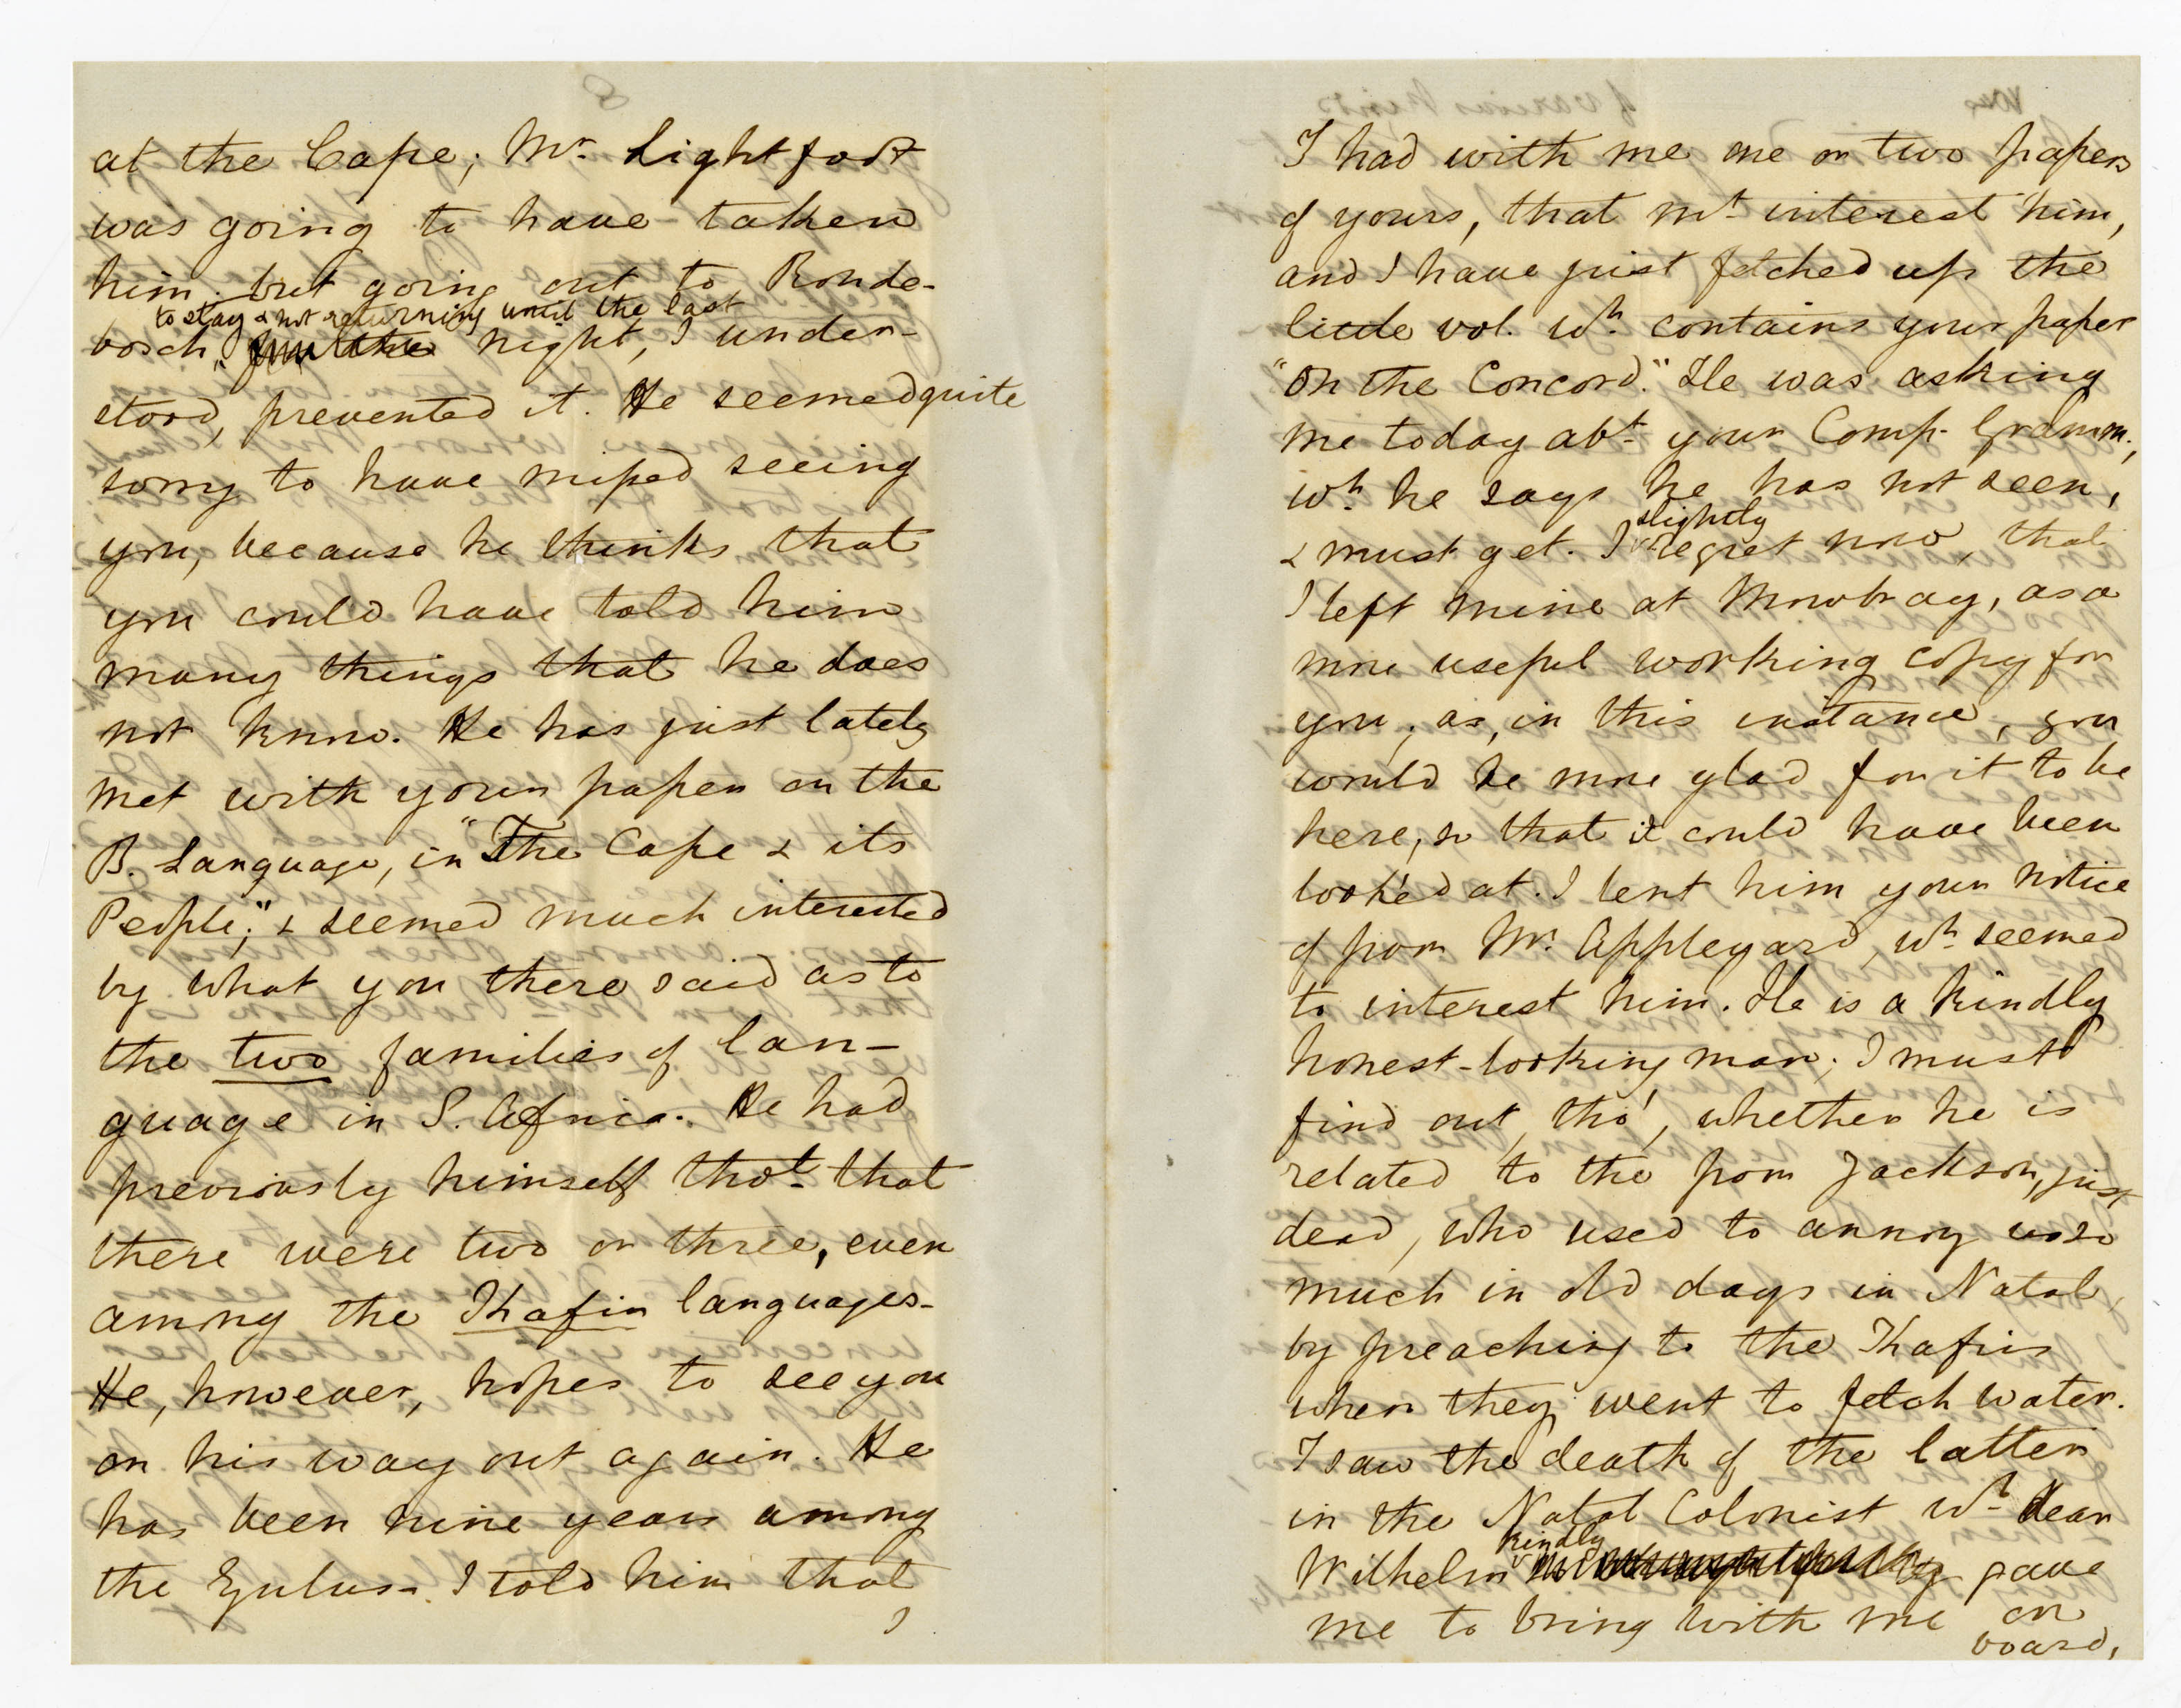 at the Cape; Mr. Lightfoot
was going to have taken
him, but going out to Ronde-
to stay & not returning until the last
bosch, night, I under-
stood, prevented it. He seemed quite
sorry to have missed seeing
you, because he thinks that
you could have told him
many things that he does
not know. He has just lately
met with your paper on the
B. Language, in "The Cape & its
People;" & seemed much interested
by what you there said as to
the two families of lan-
guage in S. Africa. He had
previously himself thot. that
there were two or three, even
among the Kafir languages.
He, however, hopes to see you
on his way out again. He
has been nine years among
the Zulus. I told him that
I
I had with me one or two papers
of yours, that mt. interest him,
and I have just fetched up the
little vol. wh. contains your paper
"On the Concord." He was asking
me today abt. your Comp. Gramm.,
wh. he says he has not seen,
slightly
& must get. I regret now, that
I left mine at Mowbray, as a
more useful working copy for
you; as, in this instance, you
would be more glad for it to be
here, so that it could have been
looked at. I lent him your notice
of poor Mr. Appleyard, wh. seemed
to interest him. He is a kindly
honest-looking man; I must
find out, tho', whether he is
related to the poor Jackson, just
dead, who used to annoy us so
much in old days in Natal,
by preaching to the Kafirs
when they went to fetch water.
I saw the death of the latter
in the Natal Colonist wh. dear
kindly
Wilhelm gave
me to bring with me on
board,